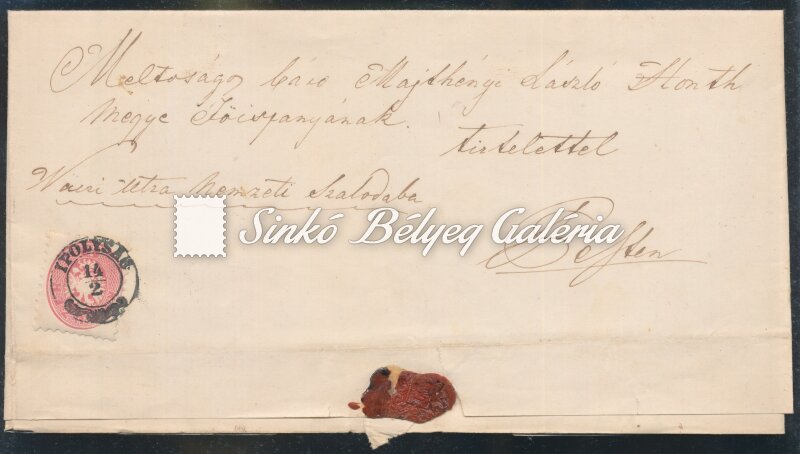 Meltoságos báró Majthényi László Honth
megye Főispanyának.
tisztelettel
Váczi utza Nemzeti Szalodaba
Pesten
Sinkó Bélyeg Galéria
IPOLYSÁG
14
2